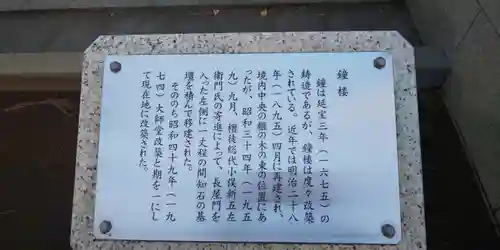 鐘楼
鐘は延宝三年（一六七五）の
鋳造であるが、鐘楼は度々改築
されている。近年では明治二十八
年（一八九五）四月に再建され、
境内中央の榧の木の東の位置にあ
ったが、昭和三十四年（一九五
九）九月、檀徒総代小俣新五左
衛門氏の寄進によって、長屋門を
入った左側に一丈程の間知石の基
壇を積んで移建された。
そののち昭和四十九年（一九
七四）大師堂改築と期を一にし
て現在地に改築された。